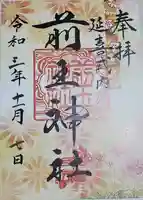 奉拝
延喜式内
前玉神社
令和三年十一月七日